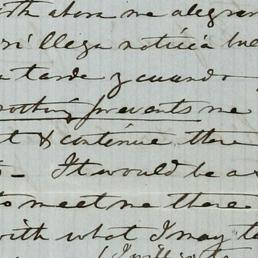 above me alegra
llega noticia
tarde y cuando
nothing prevents me
& continue there
It would be a
to meet me there
with what I may